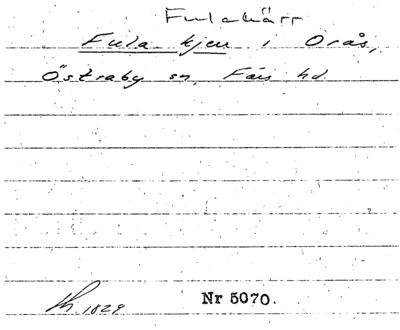 Fulakärr
Fula kjerr i Orås,
Östraby sn, Färs hd.
1829 Nr 5070.